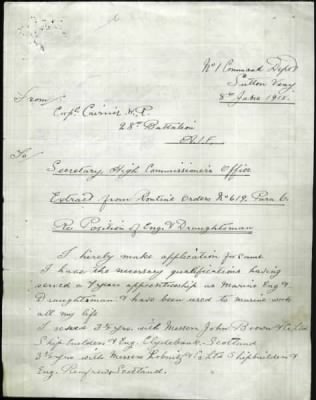 No 1 Command Depot
Sutton Veny
8th June 1918.
From
Capt. H.R.
28th Battalion
A.I.F.
To
Secretary High Commissioners Office
Extract from Routine Orders No 619. Para 6
Re Position of Eng. & Draughtsman
I hereby make application for same
I have the necessary qualifications having
served a 7 years apprenticeship as Marine Eng &
Draughtsman & have been used to marine work
all my life
I served 3½ yrs. with Messrs John Brown & Co Ltd
Shipbuilders & Eng. Clydebank. Scotland
3½ yrs with Messrs Lobnitz & Co Ltd Shipbuilders &
Eng. Renfrew Scotland.